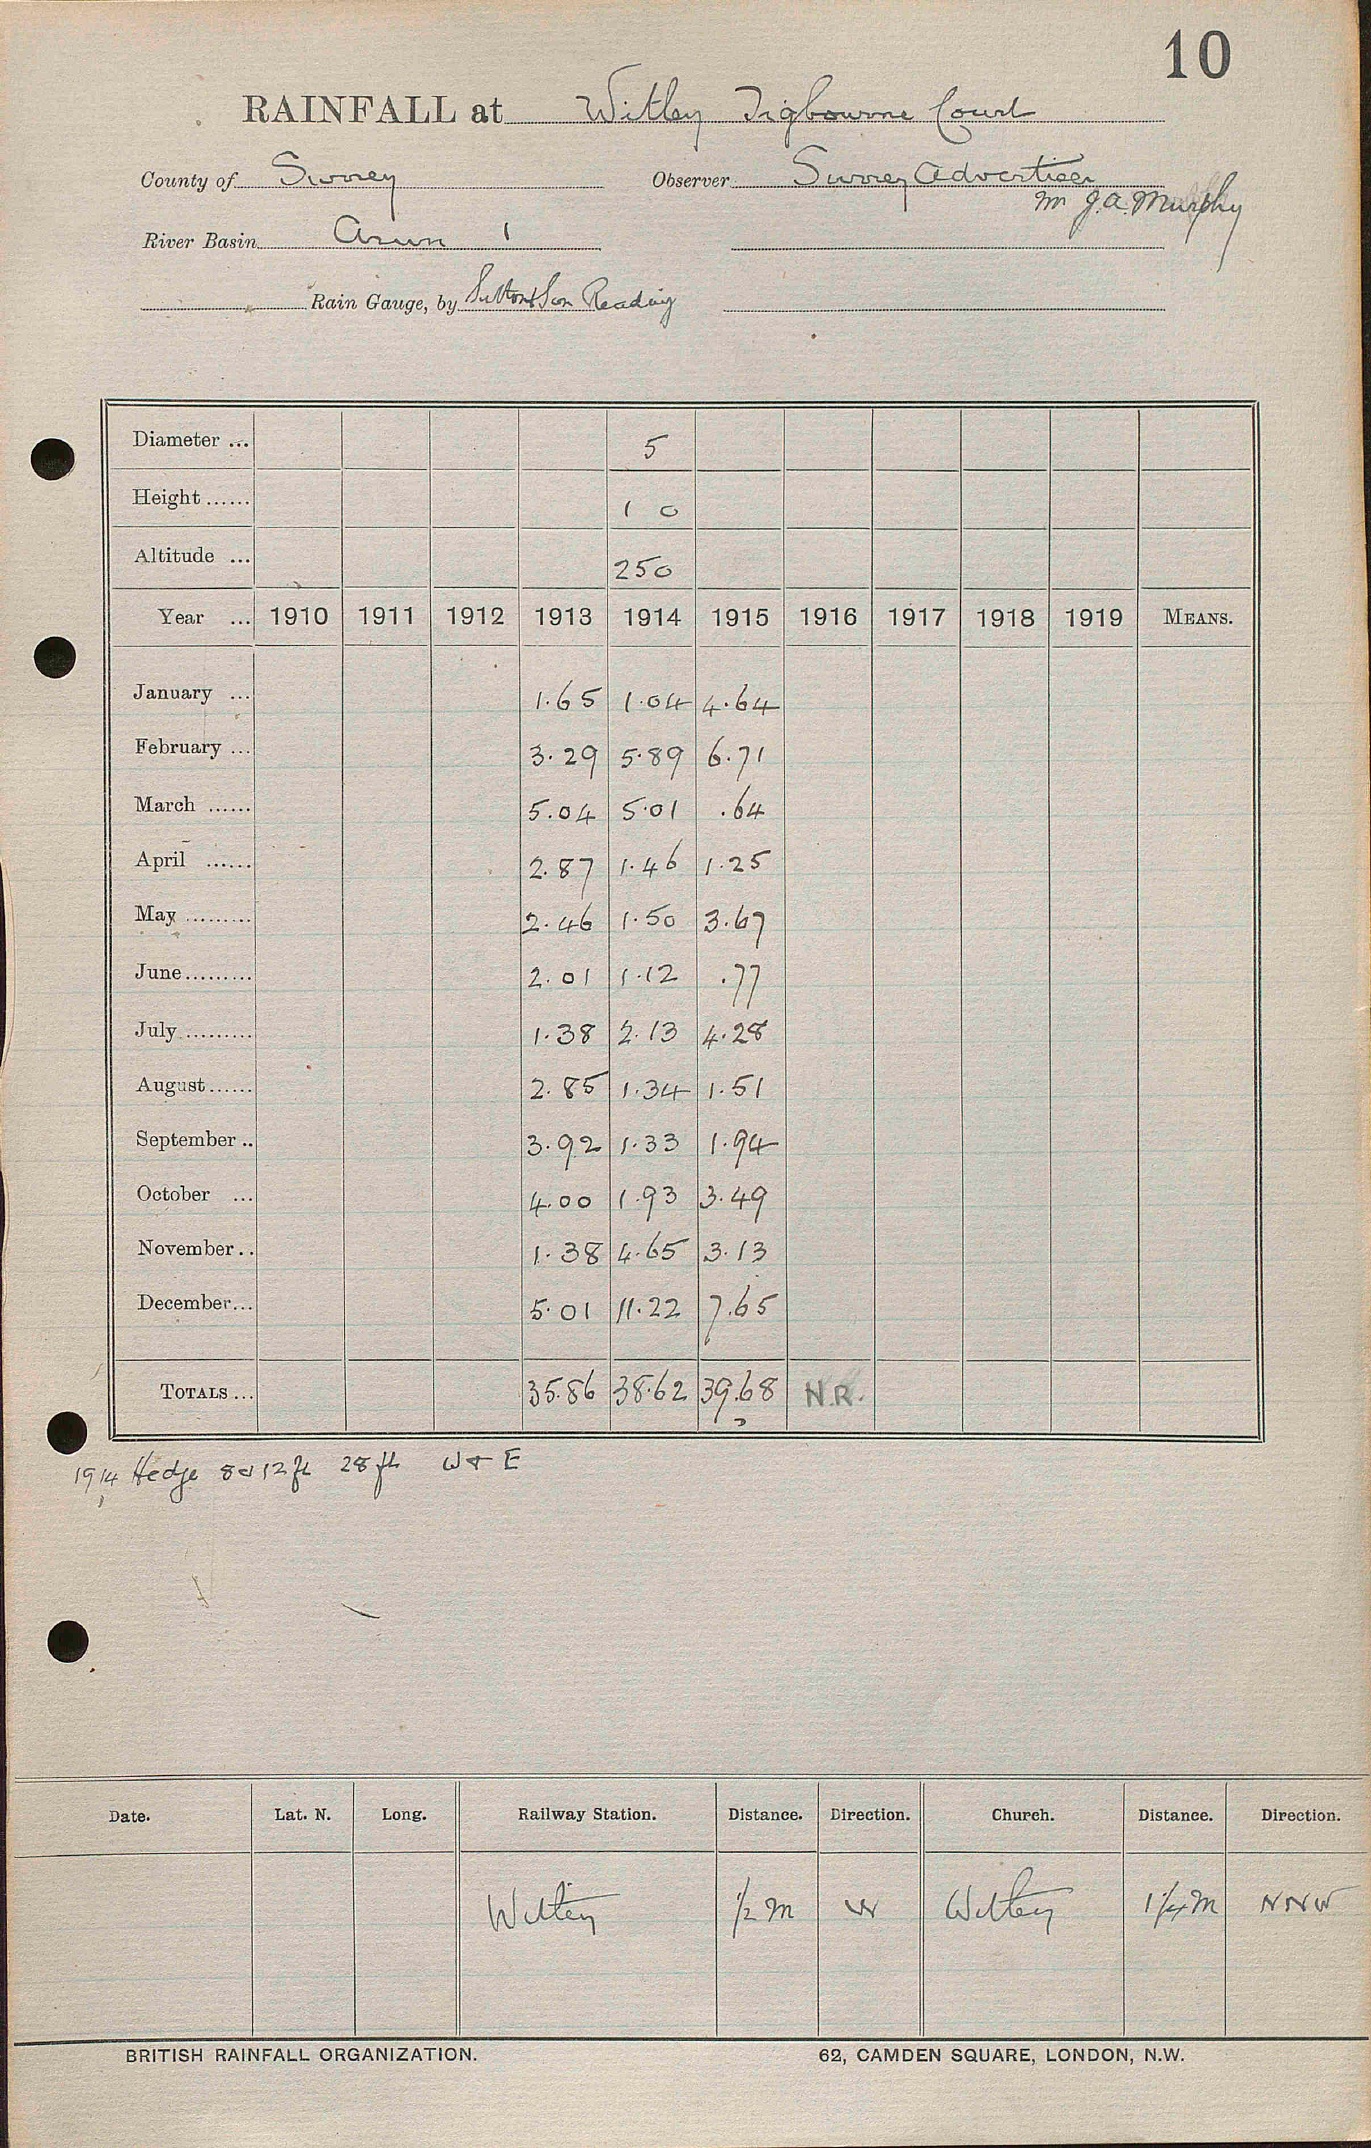 10
RAINFALL at Witley Tigbourne Court
County of Surrey Observer Surrey Advertiser
Mr J.A. Murphy
River Basin Arun 1
Rain Gauge, by Sutton & Son Reading
Diameter ... 5
Height ...... 1 0
Altitude ... 250
Year ... 1910 1911 1912 1913 1914 1915 1916 1917 1918 1919 MEANS.
January ... 1.65 1.04 4.64
February ... 3.29 5.89 6.71
March ...... 5.04 5.01 .64
April ...... 2.87 1.46 1.25
May ......... 2.46 1.50 3.67
June......... 2.01 1.12 .77
July ......... 1.38 2.13 4.28
August...... 2.85 1.34 1.51
September .. 3.92 1.33 1.94
October ... 4.00 1.93 3.49
November .. 1.38 4.65 3.13
December... 5.01 11.22 7.65
TOTALS ... 35.86 38.62 39.68 N.R.
1914 Hedge 8 & 12 ft 28 ft W & E
Date. Lat. N. Long. Railway Station. Distance. Direction. Church. Distance. Direction.
Witley 1/2 m W Witley 1 1/4 m NNW
BRITISH RAINFALL ORGANIZATION. 62, CAMDEN SQUARE, LONDON, N.W.